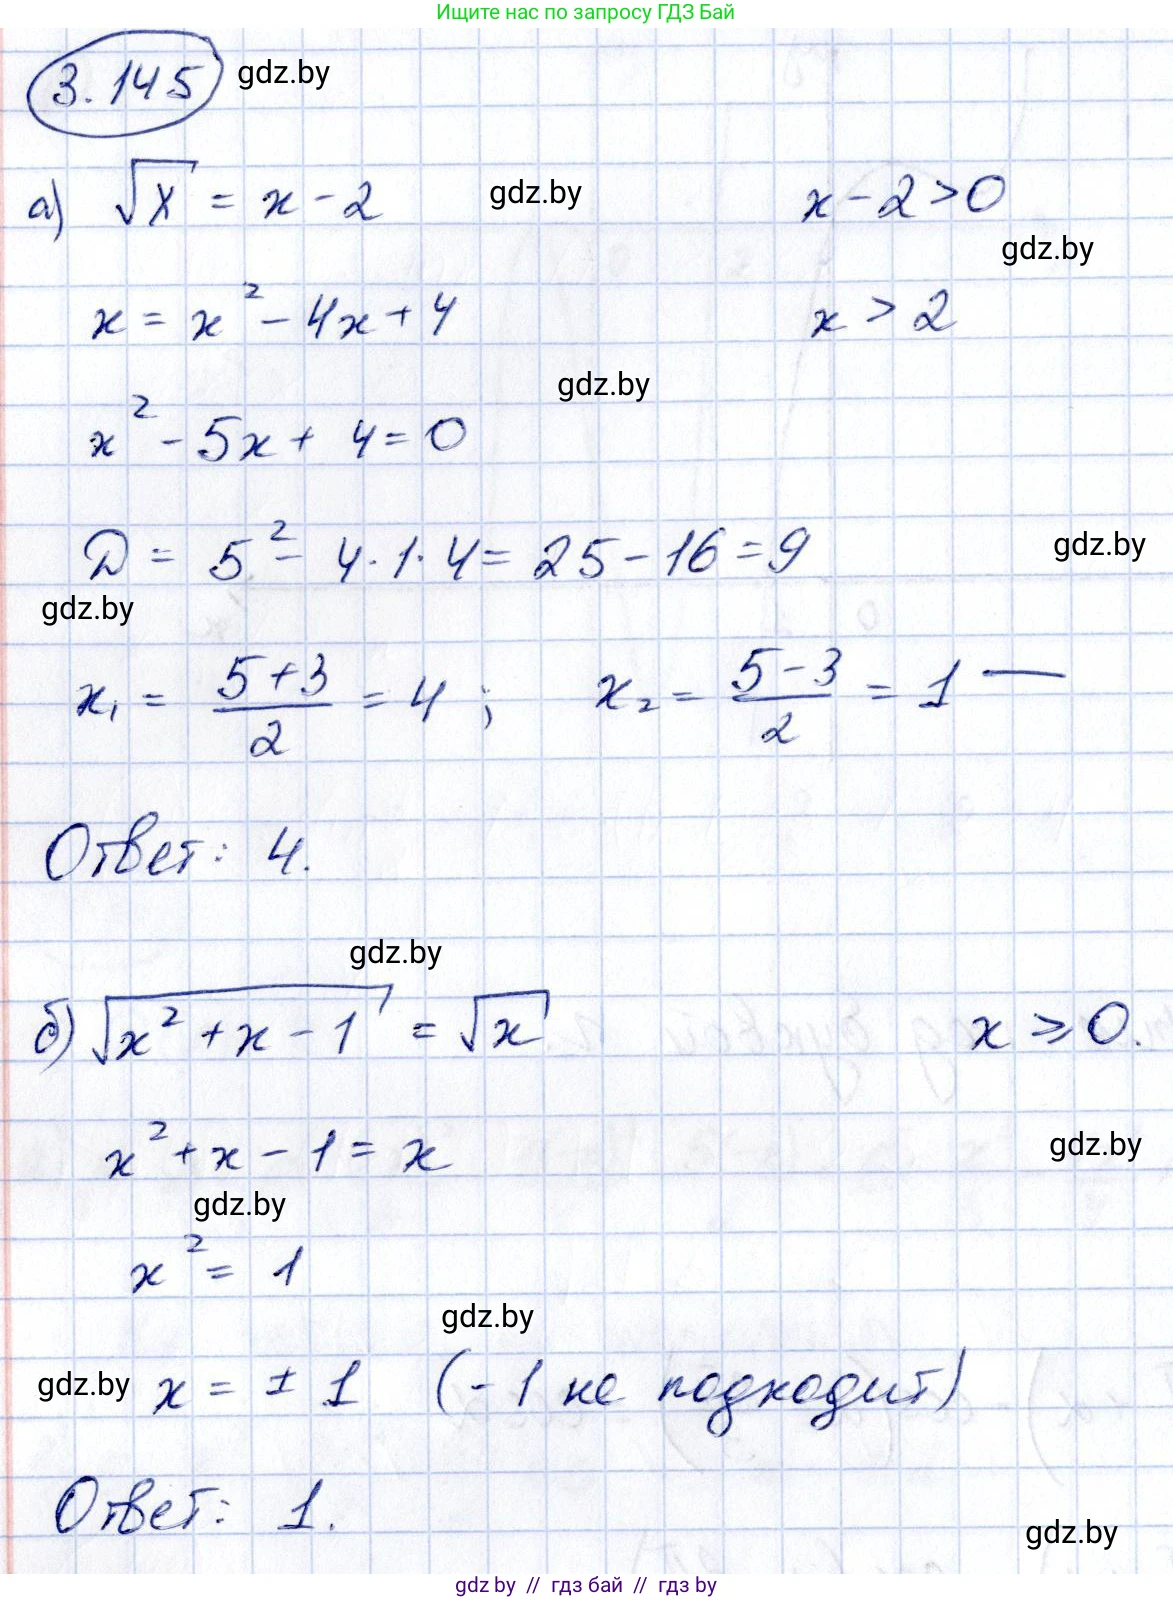 Ищите нас по запросу ГДЗ Бай
3.145 gdz.by
а) √x = x - 2 gdz.by x - 2 > 0
gdz.by
x = x² - 4x + 4 x > 2
gdz.by
x² - 5x + 4 = 0
D = 5² - 4·1·4 = 25 - 16 = 9 gdz.by
gdz.by
x₁ = (5+3)/2 = 4 ; x₂ = (5-3)/2 = 1 —
Ответ: 4.
gdz.by
б) √(x² + x - 1) = √x x ⩾ 0.
x² + x - 1 = x gdz.by
gdz.by
x² = 1
gdz.by
gdz.by x = ± 1 (-1 не подходит)
Ответ: 1.
gdz.by
gdz.by // гдз бай // gdz by